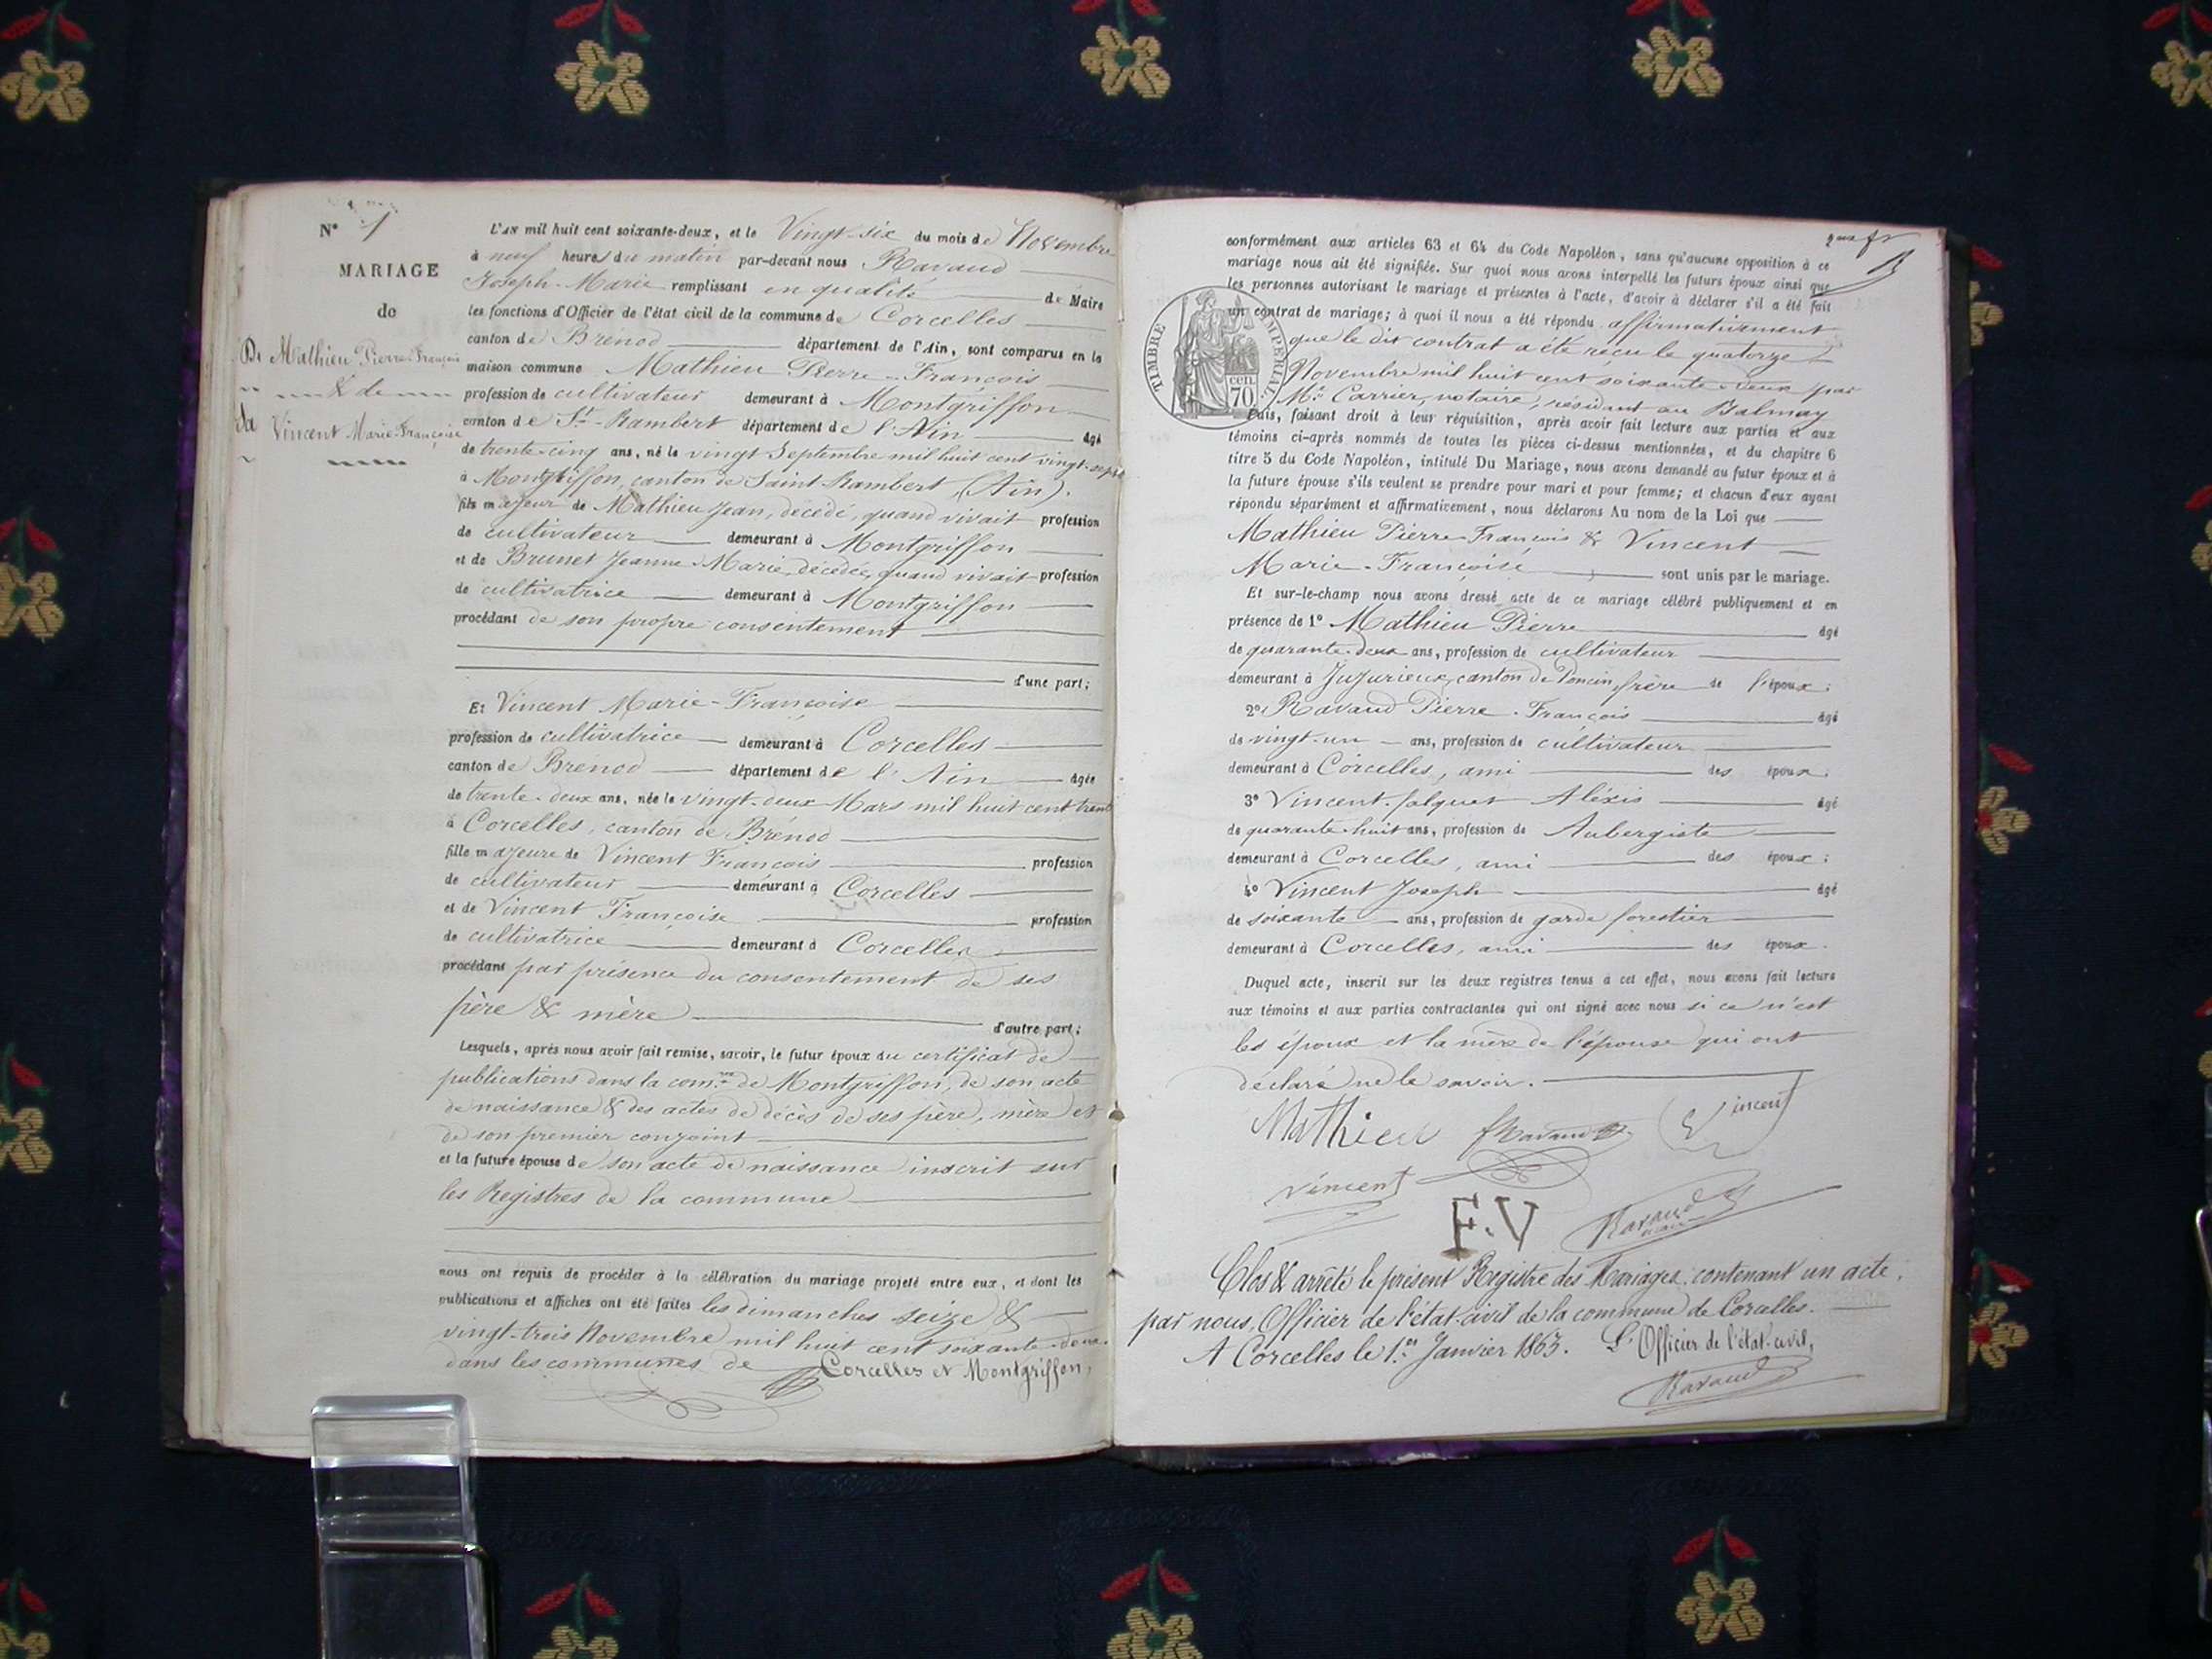 N° 1
MARIAGE
de
De Mathieu Pierre-François
& de
Vincent Marie-Françoise
L'AN mil huit cent soixante-deux, et le Vingt-six du mois de Novembre
à neuf heures du matin par-devant nous Ravaud
Joseph-Marie remplissant en qualité de Maire
les fonctions d'Officier de l'état civil de la commune de Corcelles
canton de Brénod département de l'Ain, sont comparus en la
maison commune Mathieu Pierre-François
profession de cultivateur demeurant à Montgriffon
canton de St-Rambert département de l'Ain âgé
de trente-cinq ans, né le vingt Septembre mil huit cent vingt-sept
à Montgriffon, canton de Saint Rambert, (Ain).
fils majeur de Mathieu Jean, décédé, quand vivait profession
de cultivateur demeurant à Montgriffon
et de Brunet Jeanne-Marie, décédée, quand vivait profession
de cultivatrice demeurant à Montgriffon
procédant de son propre consentement
d'une part;
Et Vincent Marie-Françoise
profession de cultivatrice demeurant à Corcelles
canton de Brenod département de l'Ain âgée
de trente-deux ans, née le vingt-deux Mars mil huit cent trente
à Corcelles, canton de Brénod
fille majeure de Vincent François profession
de cultivateur demeurant à Corcelles
et de Vincent Françoise profession
de cultivatrice demeurant à Corcelles
procédant par présence du consentement de ses
père & mère d'autre part;
Lesquels, après nous avoir fait remise, savoir, le futur époux du certificat de
publications dans la comne de Montgriffon, de son acte
de naissance & des actes de décès de ses père, mère et
de son premier conjoint
et la future épouse de son acte de naissance inscrit sur
les Registres de la commune
nous ont requis de procéder à la célébration du mariage projeté entre eux, et dont les
publications et affiches ont été faites les dimanches seize &
vingt-trois Novembre mil huit cent soixante-deux
dans les communes de Corcelles et Montgriffon,
conformément aux articles 63 et 64 du Code Napoléon, sans qu'aucune opposition à ce
mariage nous ait été signifiée. Sur quoi nous avons interpellé les futurs époux ainsi que
les personnes autorisant le mariage et présentes à l'acte, d'avoir à déclarer s'il a été fait
un contrat de mariage; à quoi il nous a été répondu affirmativement
que le dit contrat a été reçu le quatorze
Novembre mil huit cent soixante-deux par
Me Carrier, notaire, résidant au Balmay
TIMBRE IMPERIAL
70 cen.
Puis, faisant droit à leur réquisition, après avoir fait lecture aux parties et aux
témoins ci-après nommés de toutes les pièces ci-dessus mentionnées, et du chapitre 6
titre 5 du Code Napoléon, intitulé Du Mariage, nous avons demandé au futur époux et à
la future épouse s'ils veulent se prendre pour mari et pour femme; et chacun d'eux ayant
répondu séparément et affirmativement, nous déclarons Au nom de la Loi que
Mathieu Pierre-François & Vincent
Marie-Françoise sont unis par le mariage.
Et sur-le-champ nous avons dressé acte de ce mariage célébré publiquement et en
présence de 1° Mathieu Pierre âgé
de quarante-deux ans, profession de cultivateur
demeurant à Jujurieux, canton de Poncin frère de l'époux;
2° Ravaud Pierre-François âgé
de vingt-un ans, profession de cultivateur
demeurant à Corcelles, ami des époux;
3° Vincent-falquet Aléxis âgé
de quarante-huit ans, profession de Aubergiste
demeurant à Corcelles, ami des époux;
4° Vincent Joseph âgé
de soixante ans, profession de garde forestier
demeurant à Corcelles, ami des époux.
Duquel acte, inscrit sur les deux registres tenus à cet effet, nous avons fait lecture
aux témoins et aux parties contractantes qui ont signé avec nous si ce n'est
les époux et la mère de l'épouse qui ont
déclaré ne le savoir.
Mathieu fRavaud Vincent
vincent
F.V Ravaud
maire
Clos & arrêté le présent Registre des Mariages, contenant un acte,
par nous, Officier de l'état-civil de la commune de Corcelles.
A Corcelles le 1.er Janvier 1863. L'Officier de l'état-civil,
Ravaud